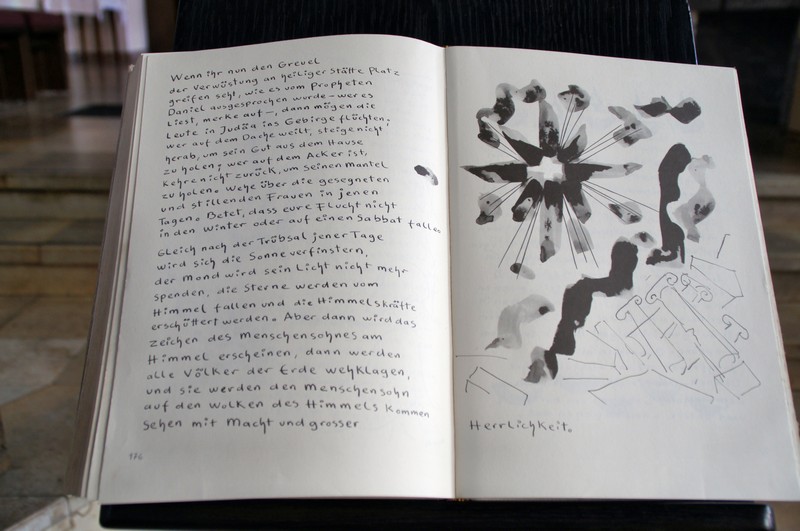 Wenn ihr nun den Greuel
der Verwüstung an heiliger Stätte Platz
greifen seht, wie es vom Propheten
Daniel ausgesprochen wurde – wer es
liest, merke auf –, dann mögen die
Leute in Judäa ins Gebirge flüchten;
wer auf dem Dache weilt, steige nicht
herab, um sein Gut aus dem Hause
zu holen; wer auf dem Acker ist,
kehre nicht zurück, um seinen Mantel
zu holen. Wehe über die gesegneten
und stillenden Frauen in jenen
Tagen. Betet, dass eure Flucht nicht
in den Winter oder auf einen Sabbat fallen
Gleich nach der Trübsal jener Tage
wird sich die Sonne verfinstern,
der Mond wird sein Licht nicht mehr
spenden, die Sterne werden vom
Himmel fallen und die Himmelskräfte
erschüttert werden. Aber dann wird das
zeichen des Menschensohnes am
Himmel erscheinen, dann werden
alle Völker der Erde wehklagen,
und sie werden den Menschensohn
auf den Wolken des Himmels kommen
sehen mit Macht und grosser
176
Herrlichkeit.